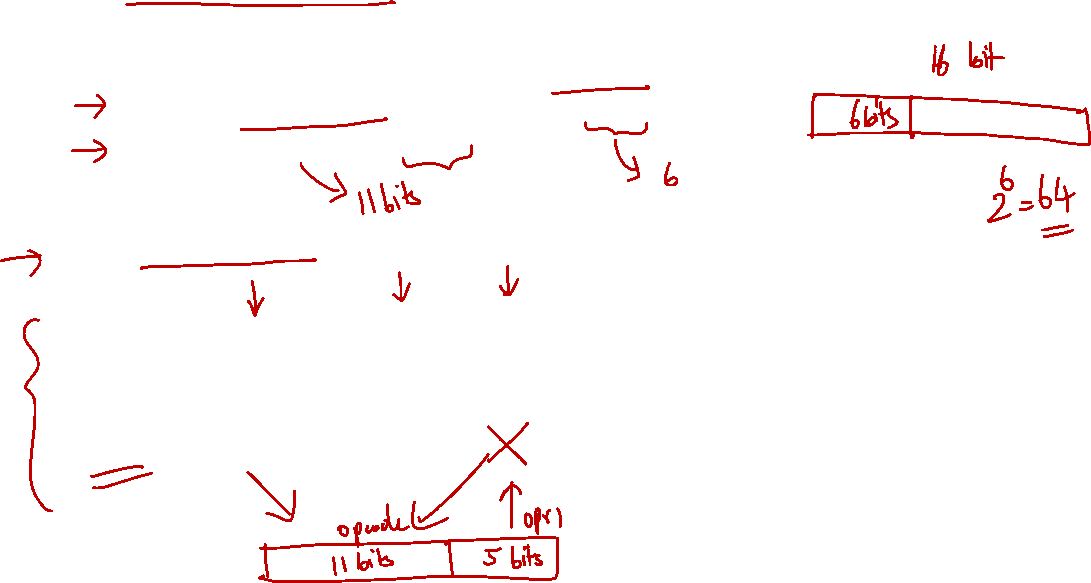 16 bit
6bits
11 bits
6
2^6=64
opcode
opr1
11 bits
5 bits